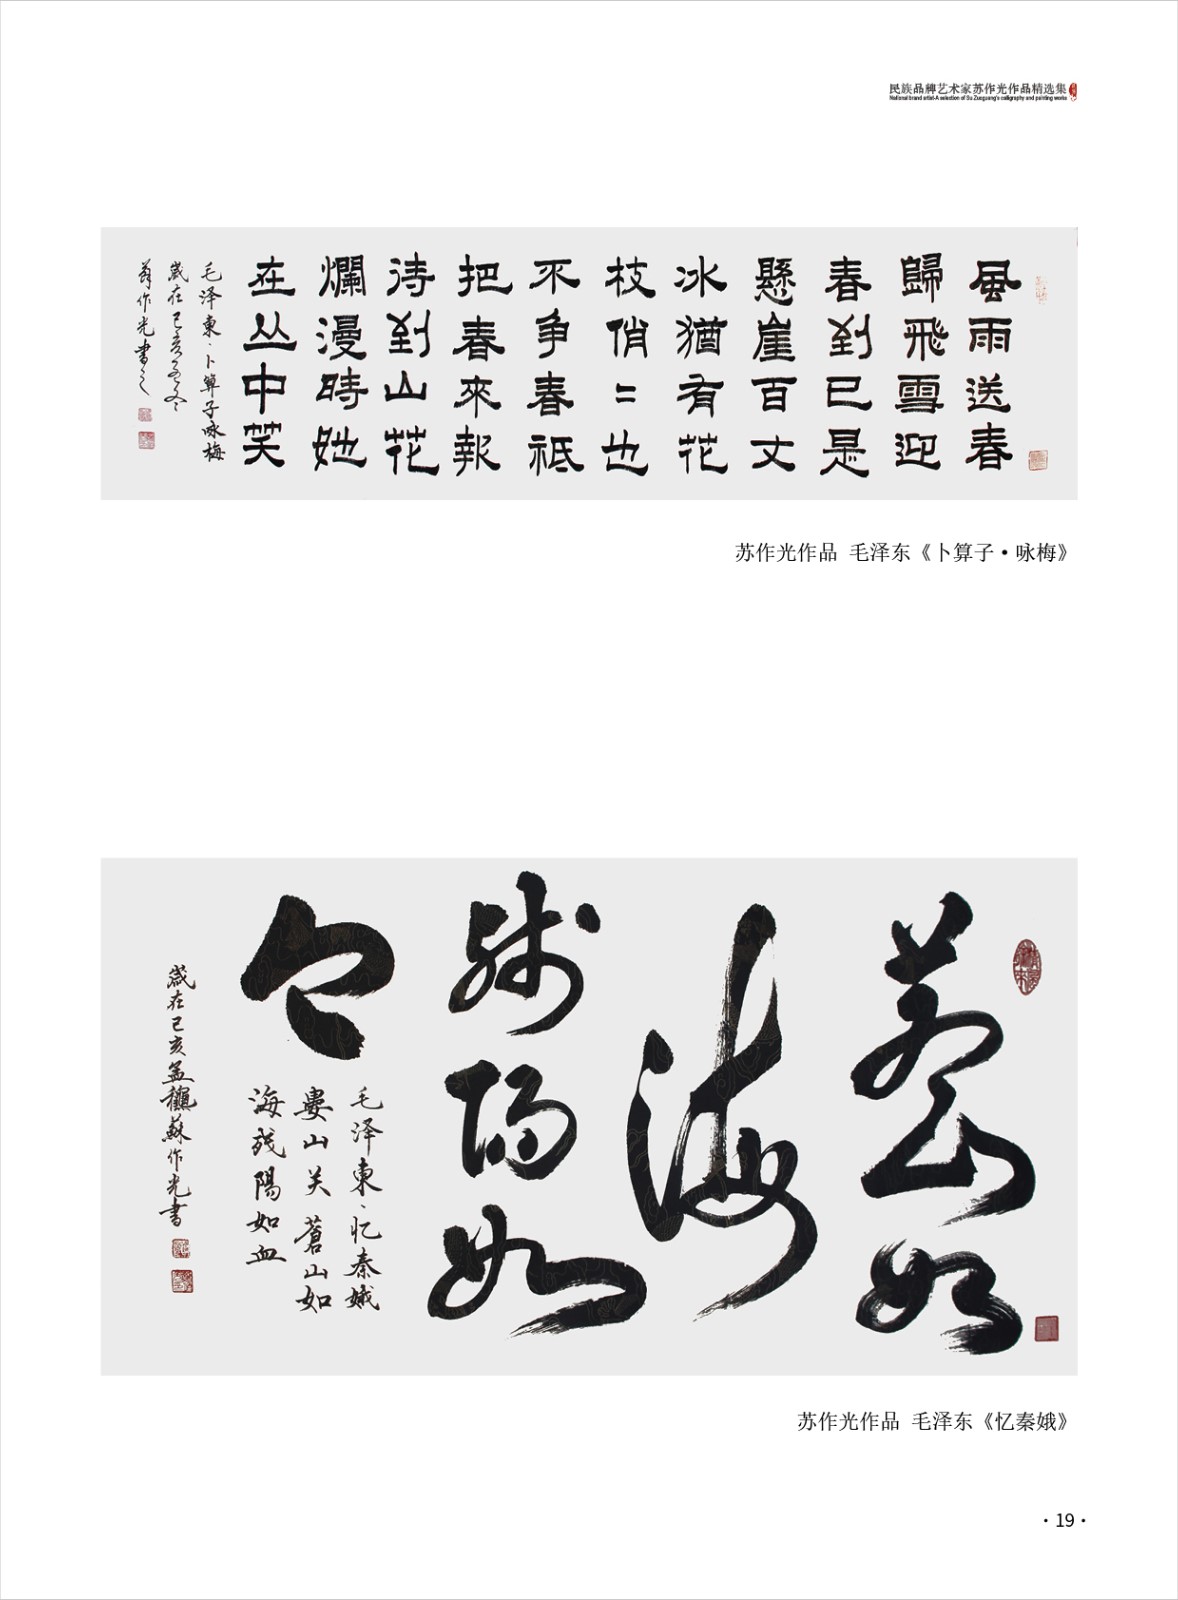 民族品牌艺术家苏作光作品精选集
National brand artist-A selection of Su Zuoguang's calligraphy and painting works
風雨送春
歸飛雪迎
春到已是
懸崖百丈
冰猶有花
枝俏〻也
不争春祗
把春來報
待到山花
爛漫時她
在丛中笑
毛泽東·卜算子咏梅
歲在己亥冬
蘇作光書之
苏作光作品 毛泽东《卜算子•咏梅》
蒼山如
海
残陽如
血
毛泽東·忆秦娥
婁山关 蒼山如
海残陽如血
歲在己亥孟龝蘇作光書
苏作光作品 毛泽东《忆秦娥》
·19·